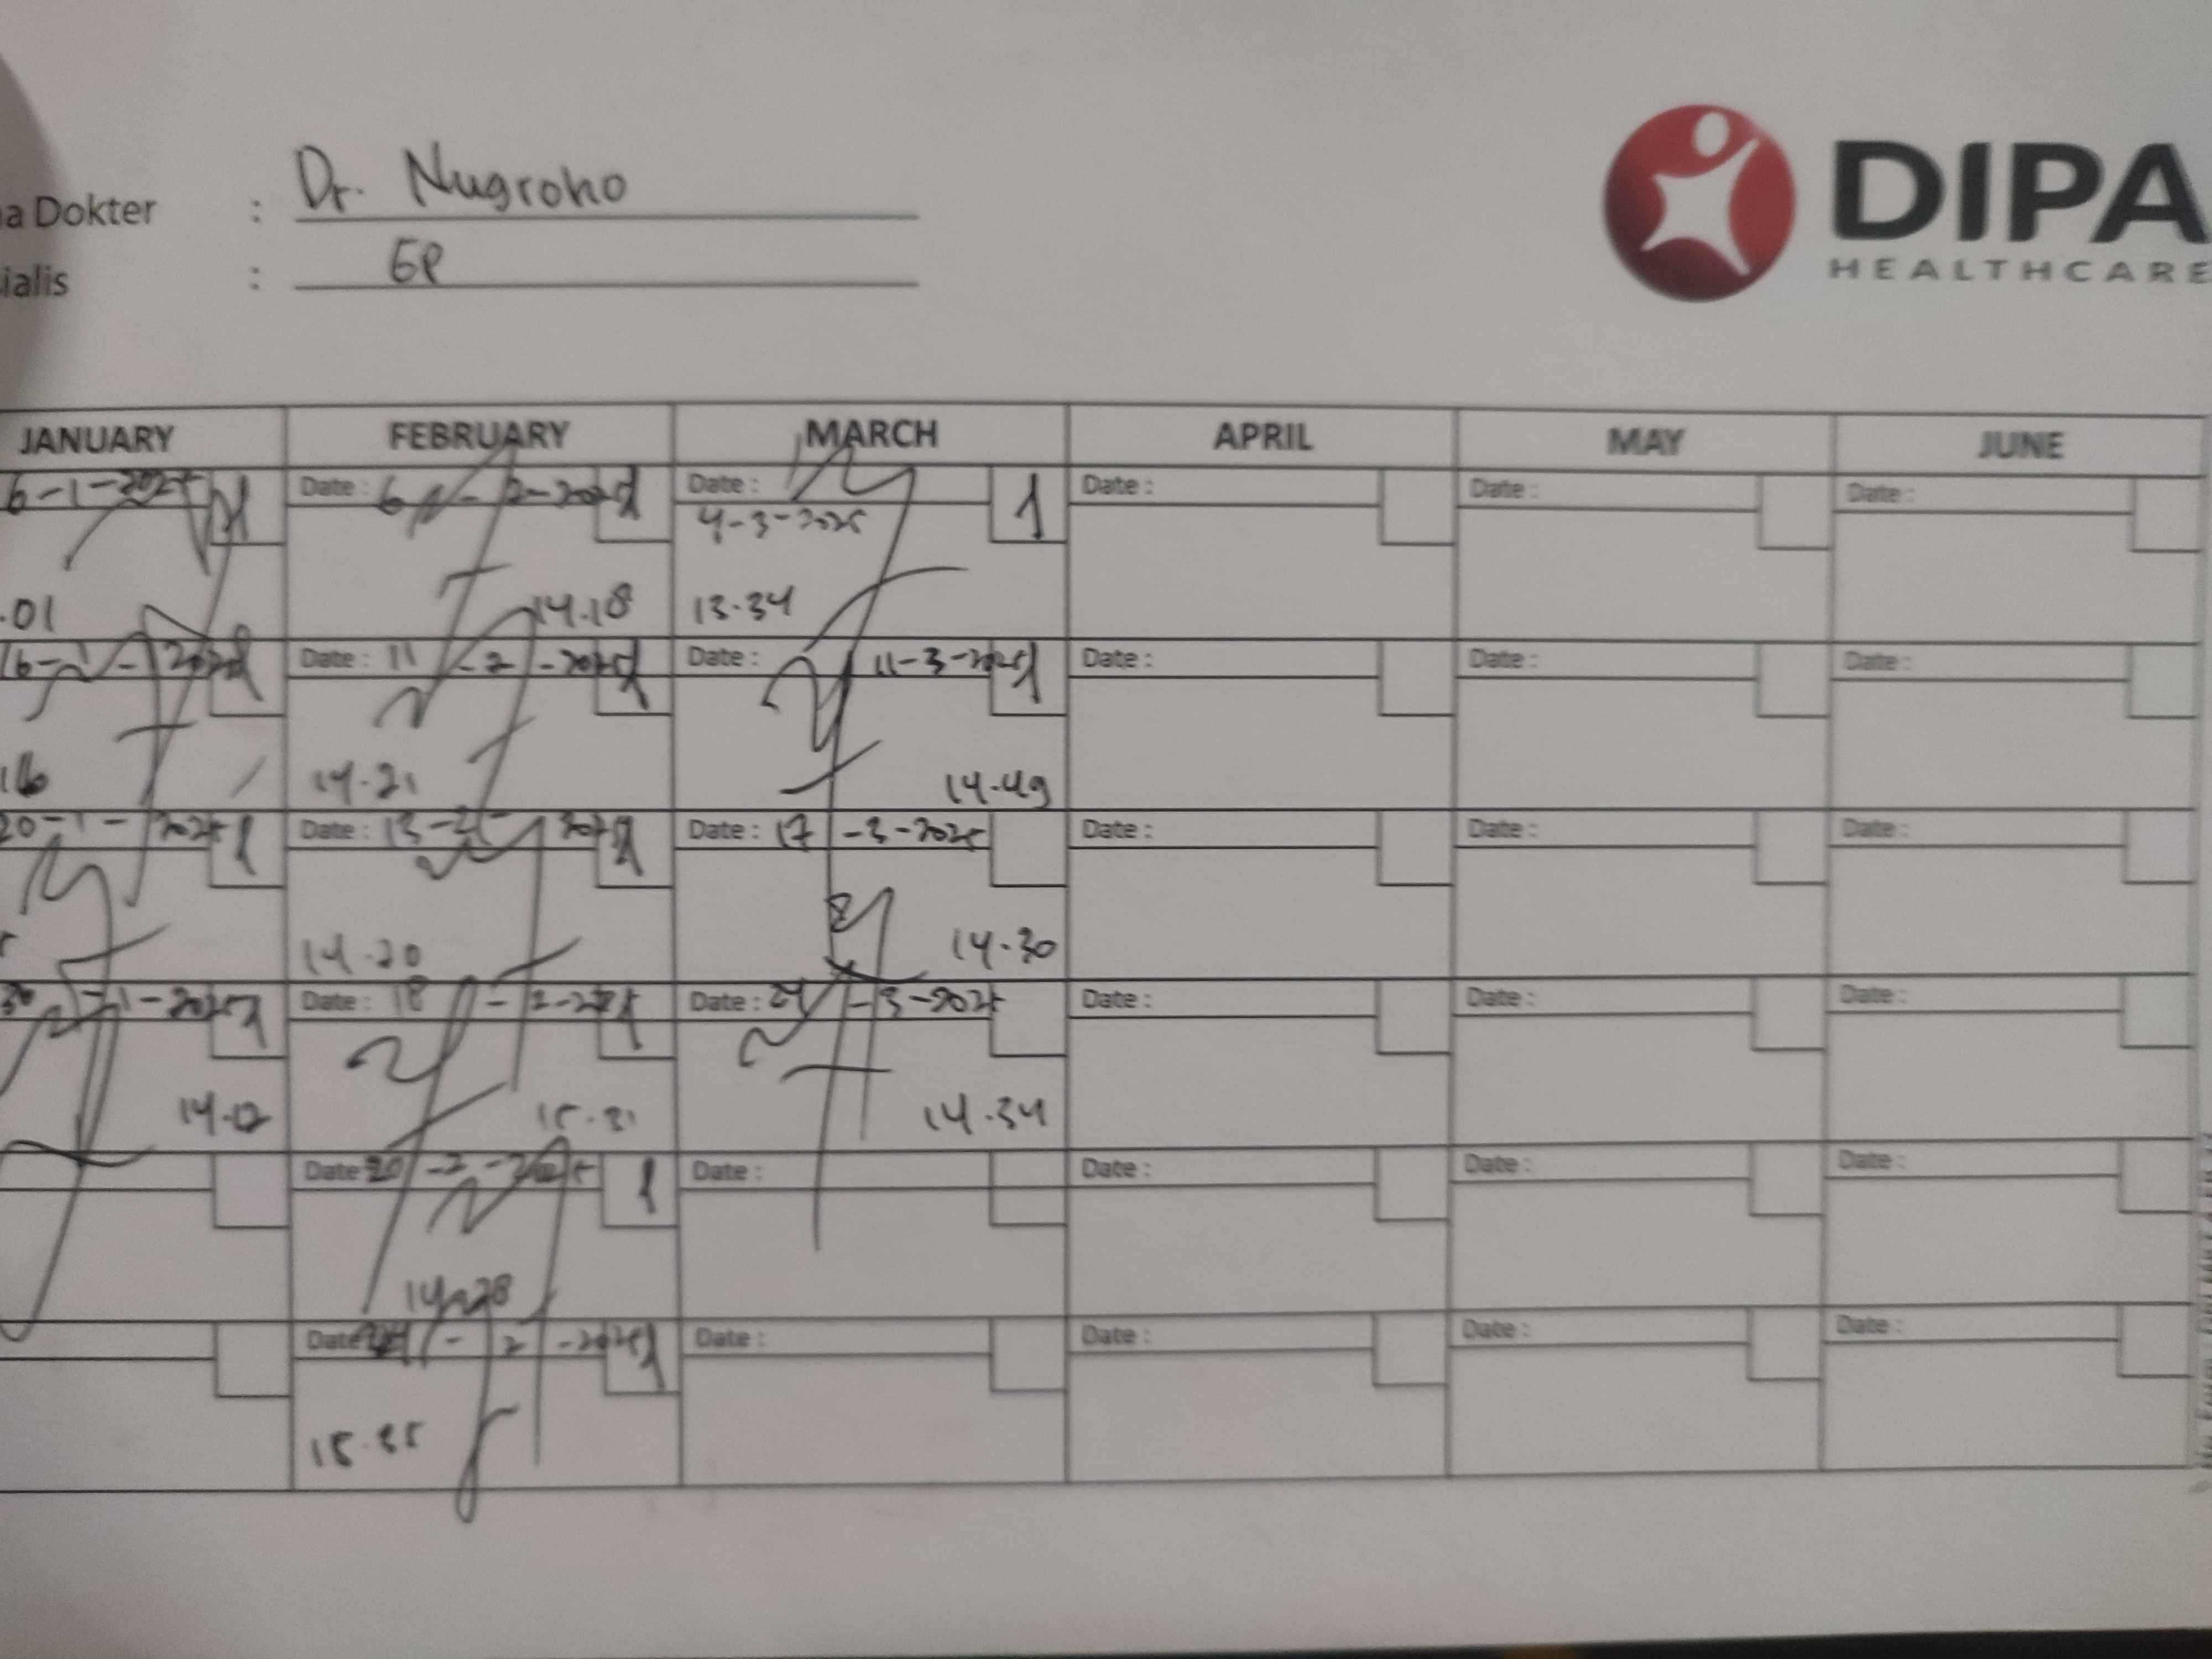 a Dokter : Dr. Nugroho
ialis : GP
DIPA
HEALTHCARE
JANUARY FEBRUARY MARCH APRIL MAY JUNE
6-1-2025 Date : 6 - 2-2025 Date : Date : Date : Date :
4-3-2025 1
.01 14.18 13.34
16-1-2025 Date : 11 -2 -2025 Date : 11-3-2025 Date : Date : Date :
16 14.21 14.49
20-1-2025 1 Date : 13-2- 2025 Date : 17 -3-2025 Date : Date : Date :
14.20 14.30
30 -1-2025 Date : 18 - 2-2025 Date : 24 -3-2025 Date : Date : Date :
14.12 15.31 14.34
Date 20 -2 -2025 1 Date : Date : Date : Date :
14.28
Date - 2 -2025 Date : Date : Date : Date :
15.35